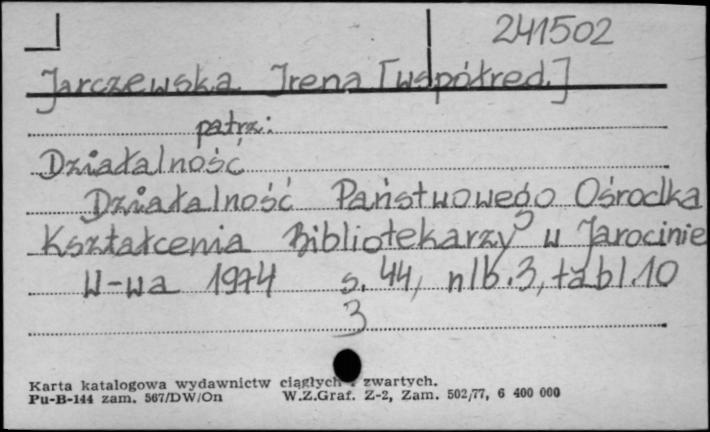 241502
Jarczewska Irena [współred.]
patrz:
Działalność
Działalność Państwowego Ośrodka
Kształcenia Bibliotekarzy w Jarocinie
W-wa 1974 s. 44, nlb. 3, tabl. 10
3
Karta katalogowa wydawnictw ciągłych i zwartych.
Pu-B-144 zam. 567/DW/On W.Z.Graf. Z-2, Zam. 502/77, 6 400 000